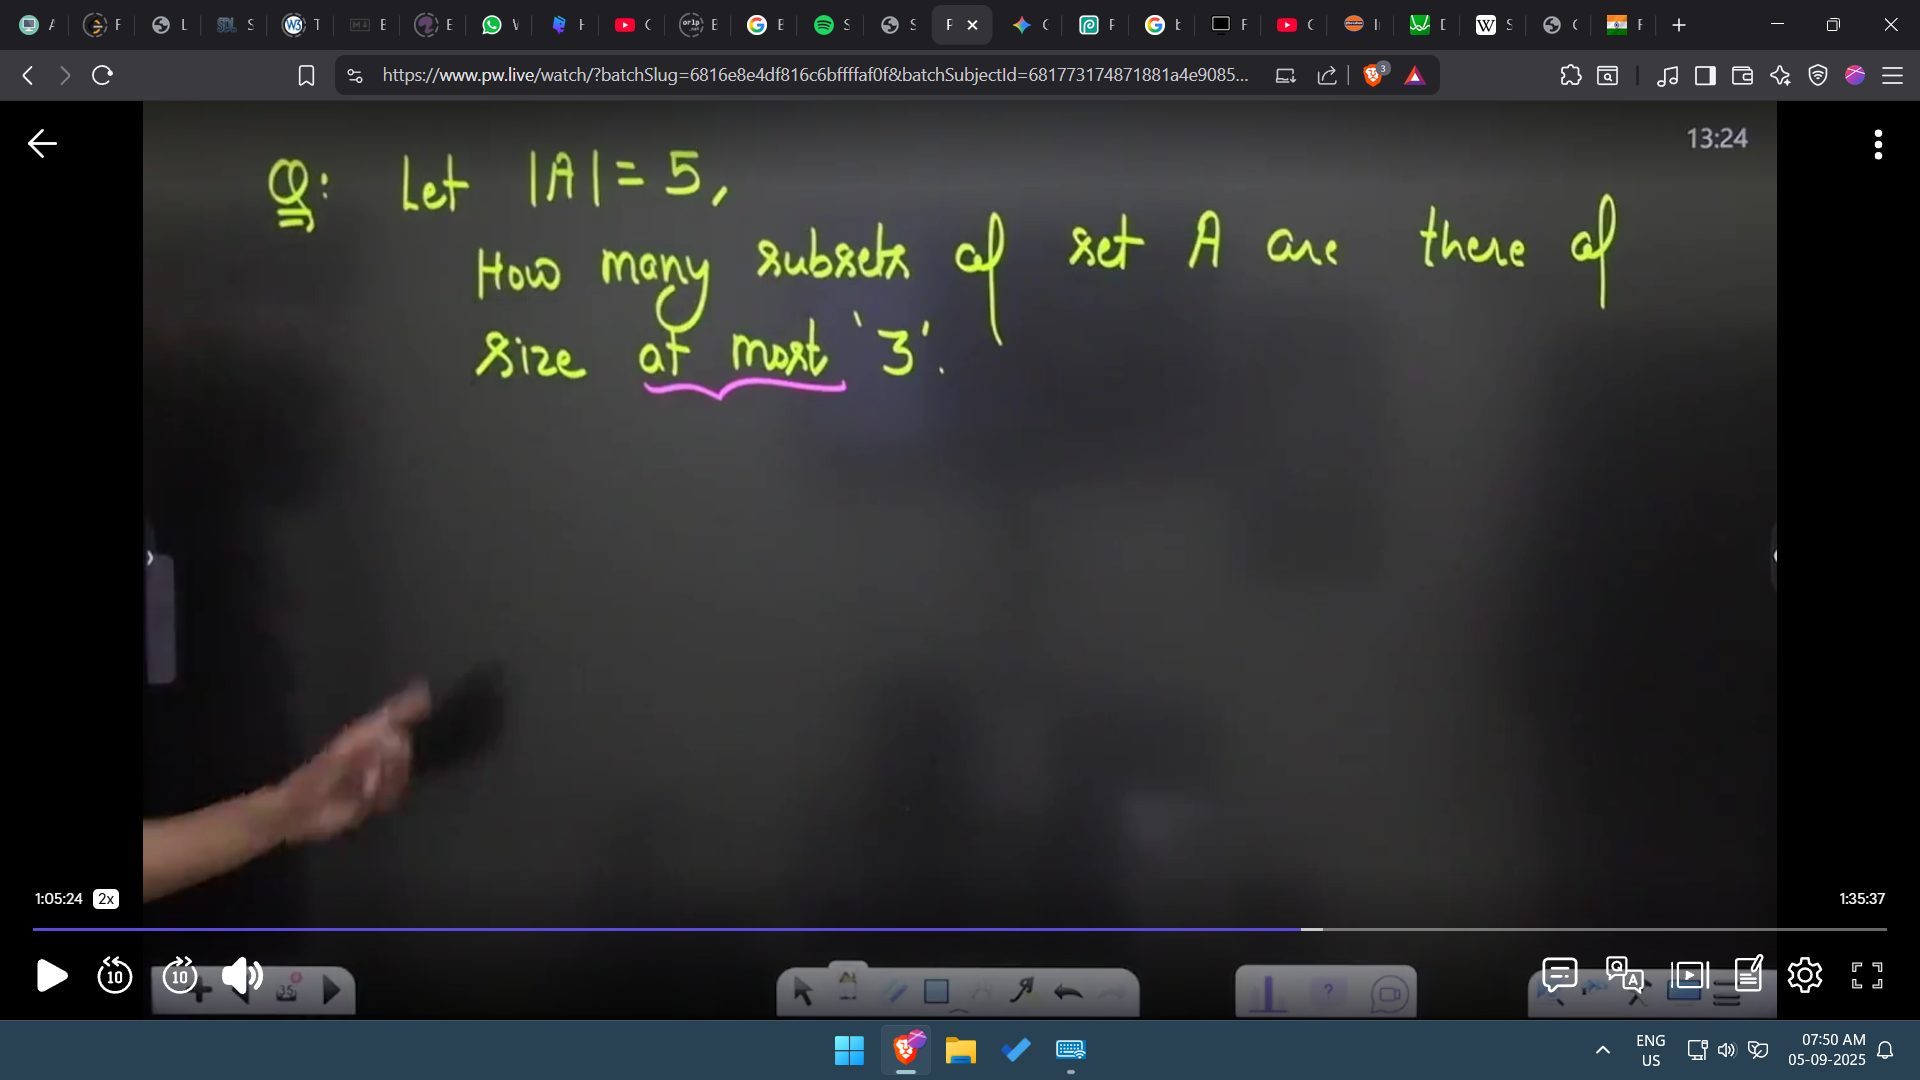 https://www.pw.live/watch/?batchSlug=6816e8e4df816c6bffffaf0f&batchSubjectId=681773174871881a4e9085...
3
13:24
Q: Let |A| = 5,
How many subsets of set A are there of
size at most '3'.
1:05:24 2x
1:35:37
10 10
35
ENG
US
07:50 AM
05-09-2025